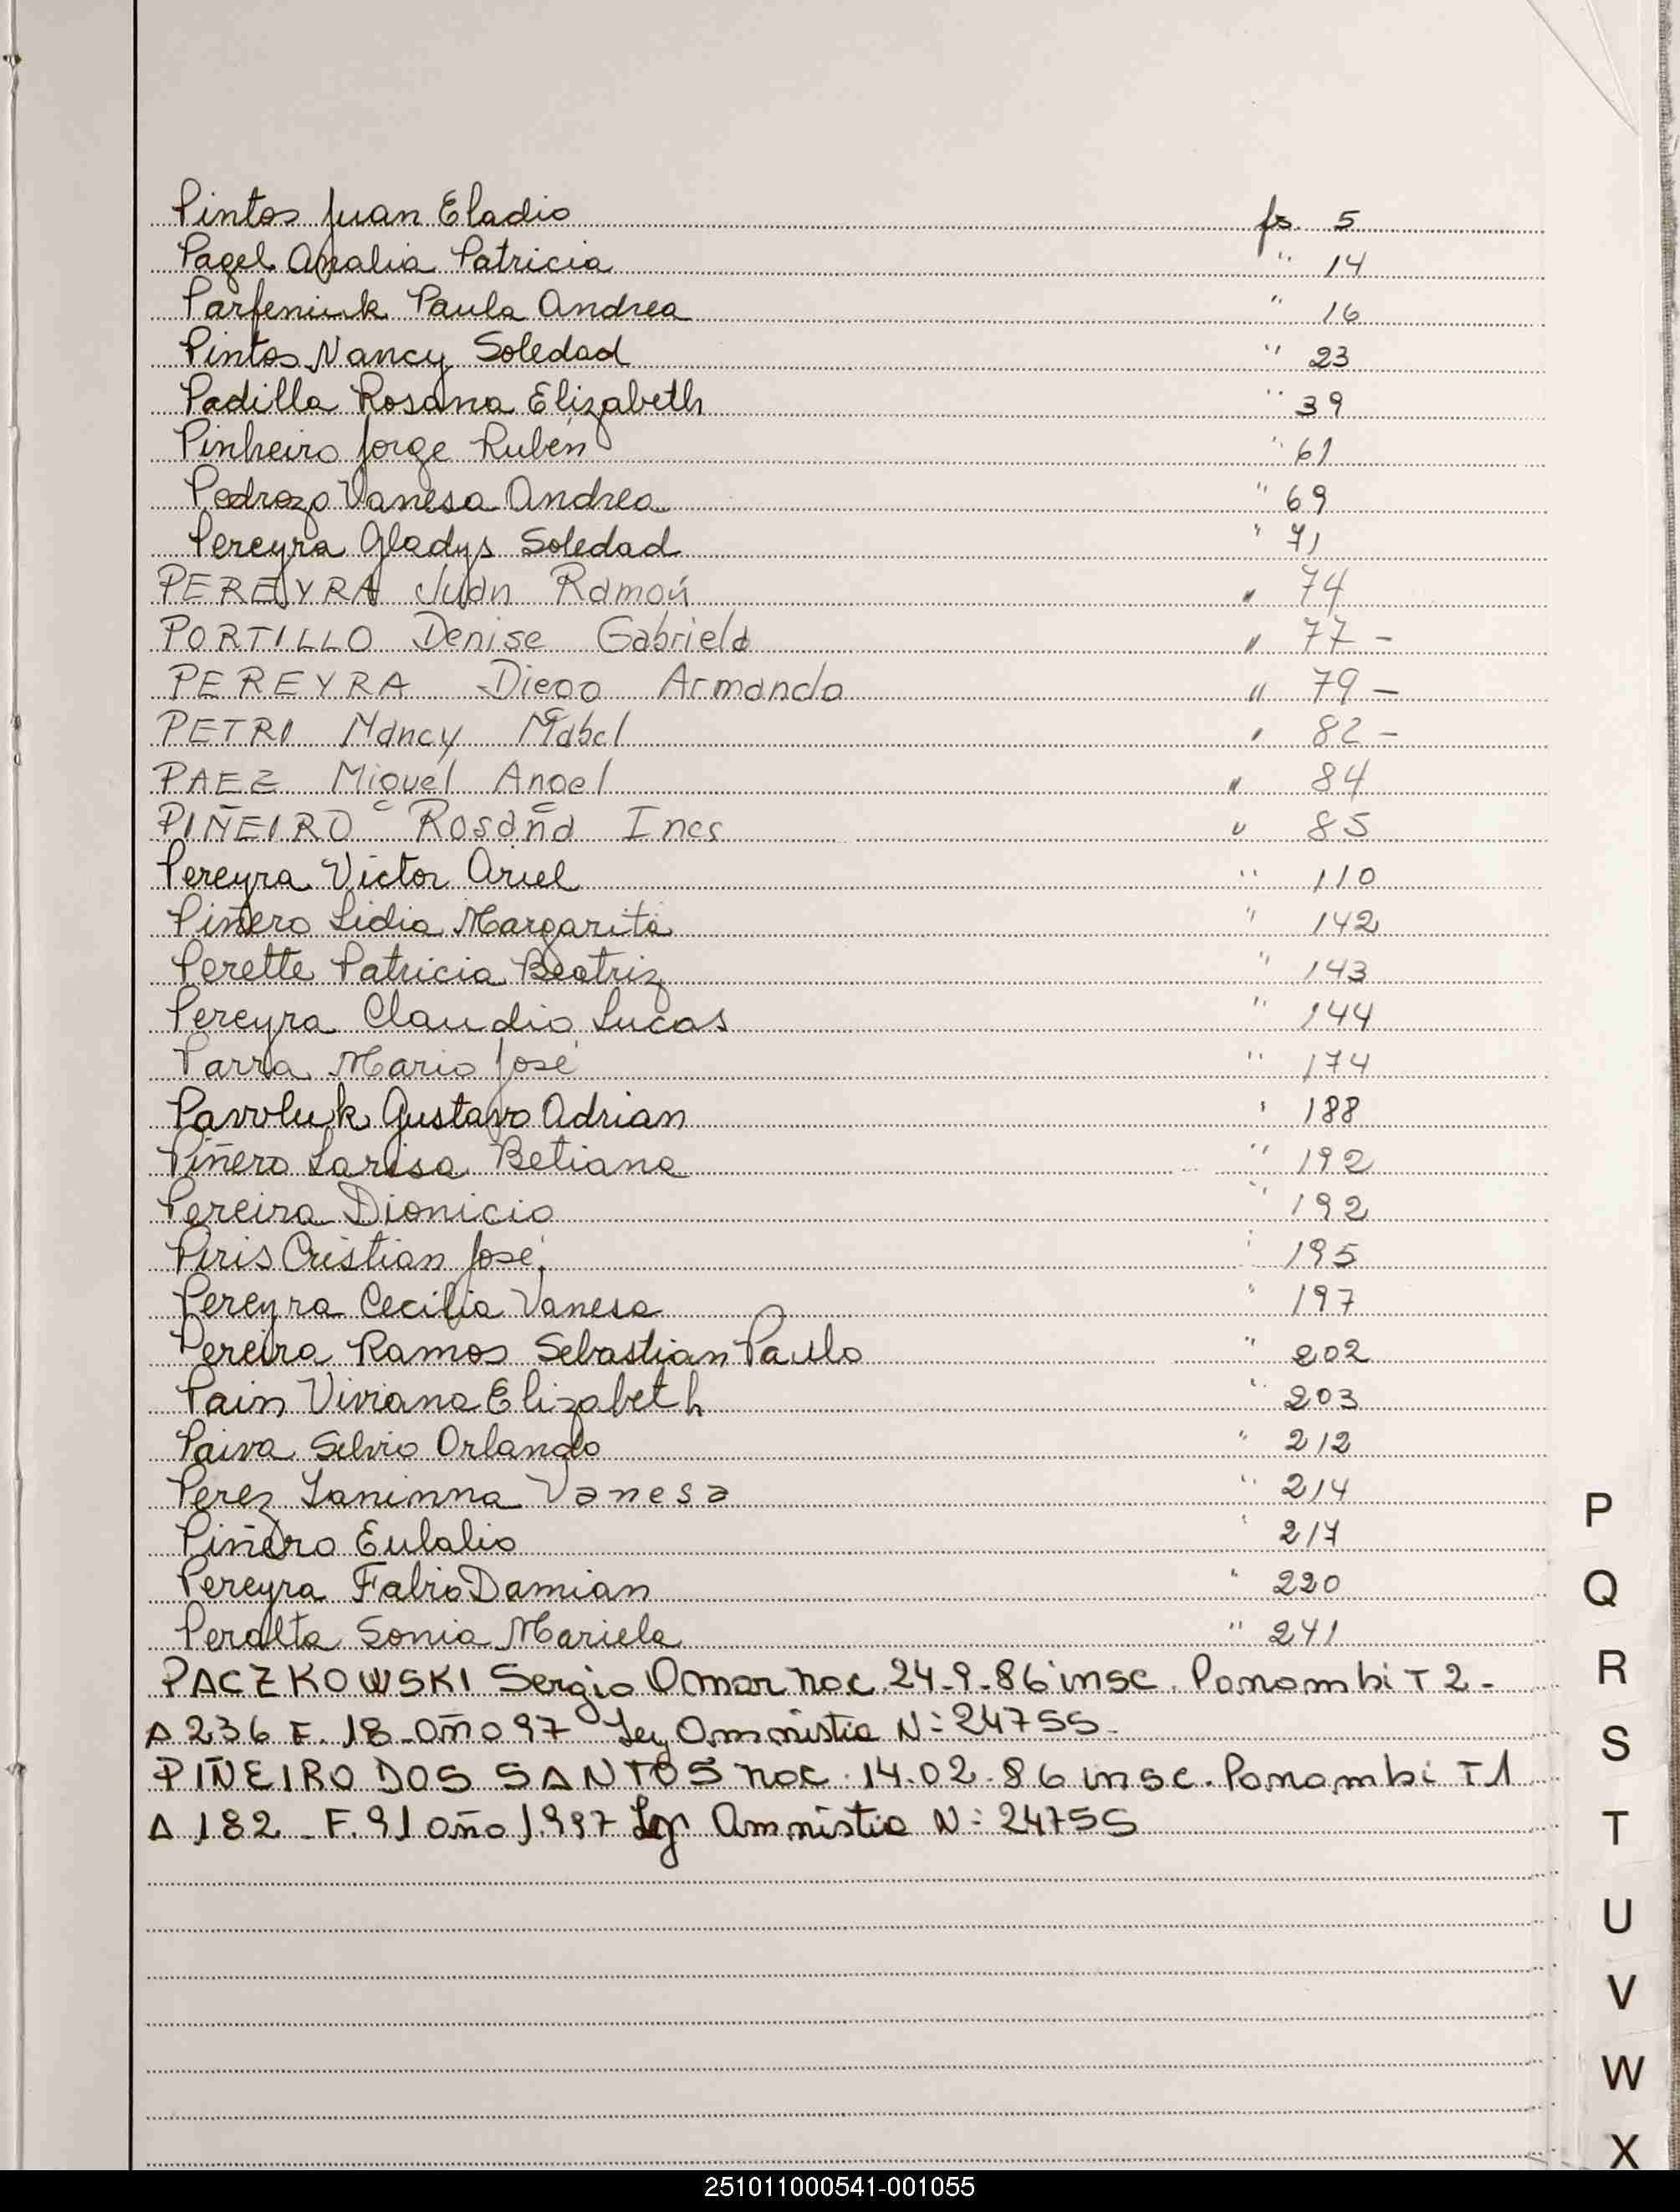 Pintos Juan Eladio fs. 5
Pagel Analia Patricia " 14
Parfeniuk Paula Andrea " 16
Pintos Nancy Soledad " 23
Padilla Rosana Elizabeth " 39
Pinheiro Jorge Rubén " 61
Pedrozo Vanesa Andrea " 69
Pereyra Gladys Soledad " 71
PEREYRA Juan Ramoń " 74
PORTILLO Denise Gabriela " 77 -
PEREYRA Diego Armando " 79 -
PETRI Nancy Mabel " 82 -
PAEZ Miguel Angel " 84
PIÑEIRO Rosana Ines " 85
Pereyra Victor Ariel " 110
Piñero Lidia Margarita " 142
Perette Patricia Beatriz " 143
Pereyra Claudio Lucas " 144
Parra Mario José " 174
Pavvluk Gustavo Adrian " 188
Piñero Larisa Betiana " 192
Pereira Dionicio " 192
Piris Cristian José. " 195
Pereyra Cecilia Vanesa " 197
Pereira Ramos Sebastian Paulo " 202
Pain Viviana Elizabeth " 203
Paiva Silvio Orlando " 212
Perez Ianinna Vanesa " 214
Piñero Eulalio " 217
Pereyra Fabio Damian " 220
Peralta Sonia Mariela " 241
PACZKOWSKI Sergio Omar nac. 24-9-86 insc. Panambi T 2-
A 236 F. 18 año 97 Ley Amnistia N: 24755-
PIÑEIRO DOS SANTOS nac. 14.02.86 insc. Panambi T1
A 182 - F. 91 año 1.997 Ley Amnistia N: 24755
P
Q
R
S
T
U
V
W
X
251011000541-001055